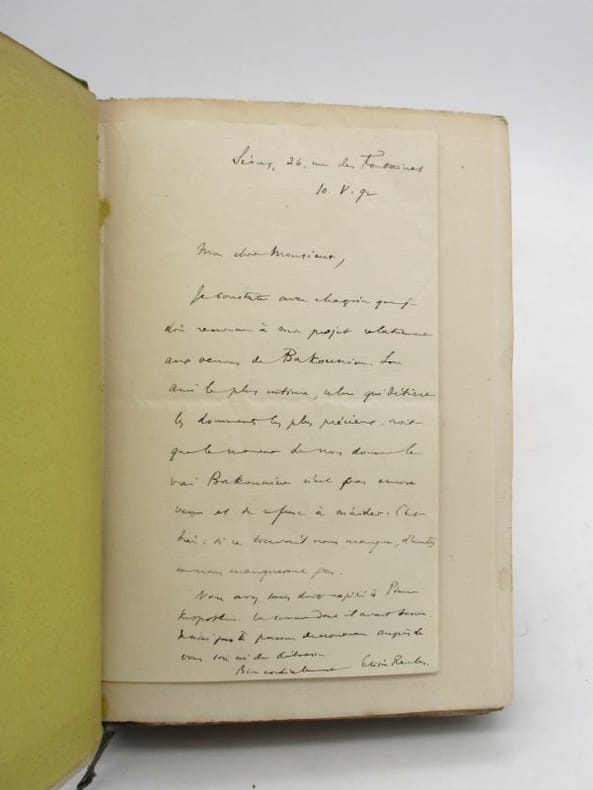 Sèvres, 26. rue des Fontaines
10. V. 92
Mon cher Monsieur,
Je constate avec chagrin que je
dois renoncer à mon projet relativement
aux œuvres de Bakounine. Son
ami le plus intime, celui qui détient
les documents les plus précieux, croit
que le moment de nous donner le
vrai Bakounine n'est pas encore
venu et se refuse à m'aider. C'est
si ce travail nous manque, d'autres
ne nous manqueront pas.
Vous avez sans doute expédié à Pierre
Kropotkine la somme dont il avait besoin
auprès de
vous son
Bien cordialement Elisée Reclus.